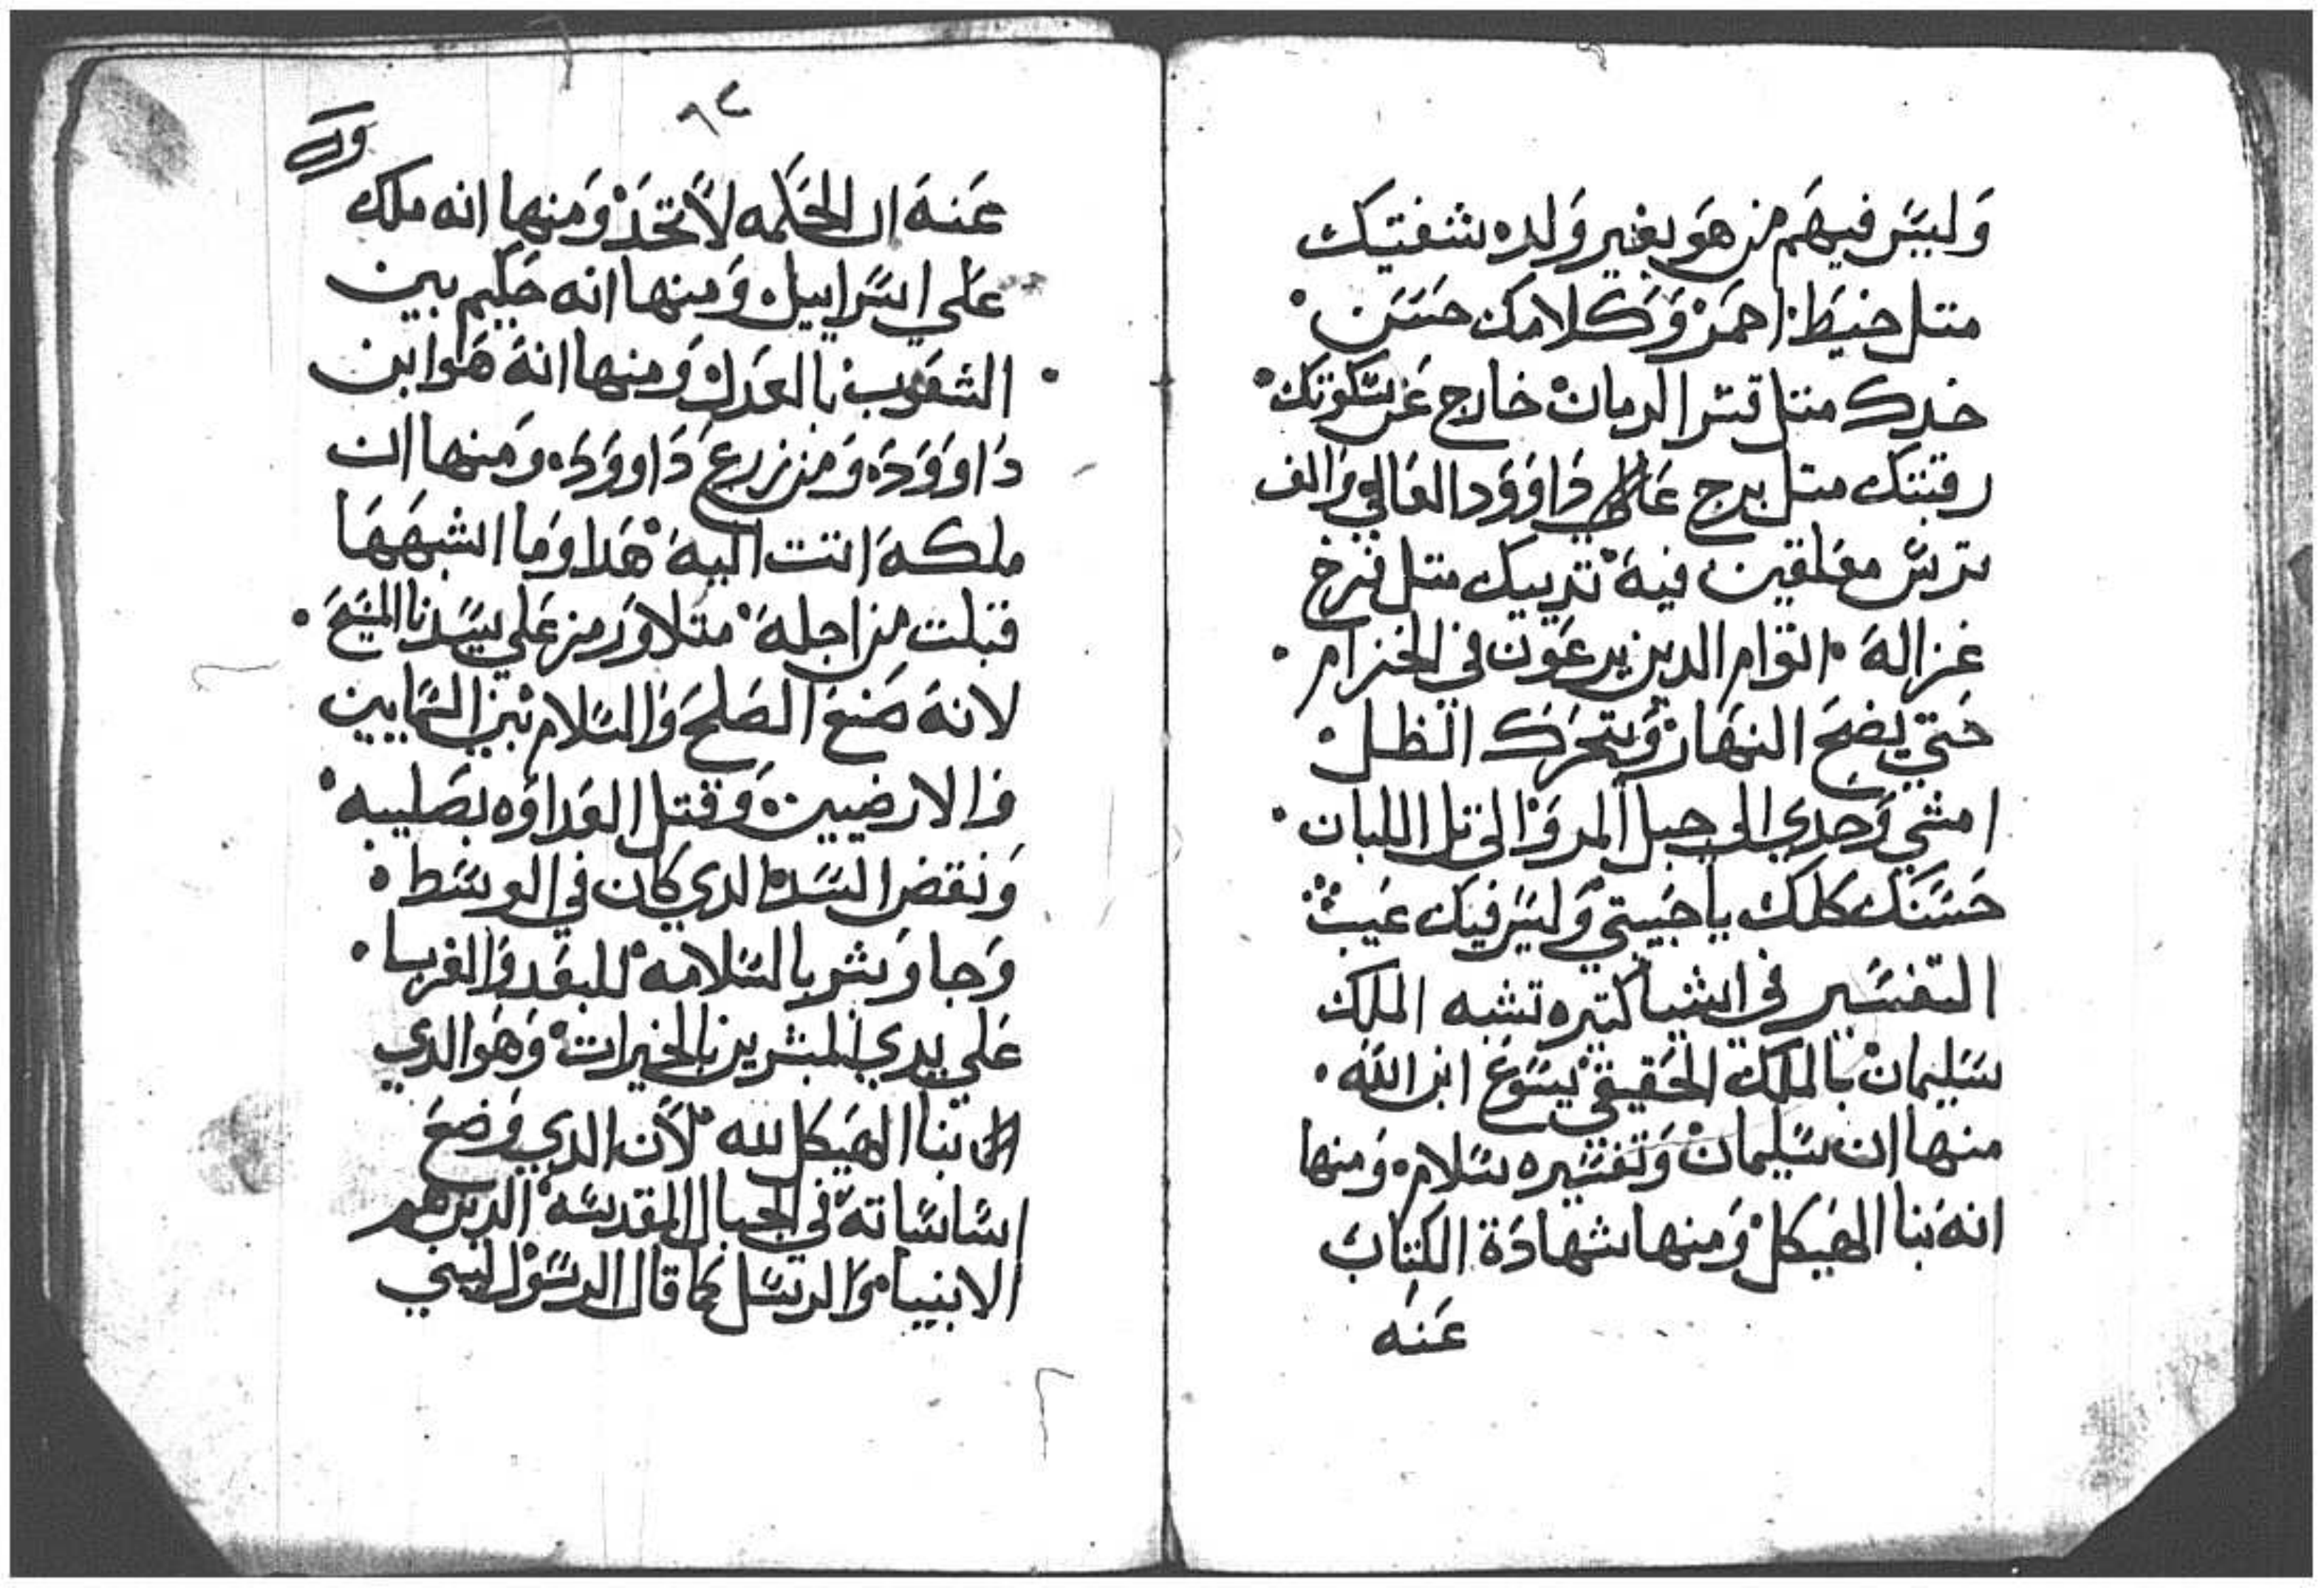 وَليسَ فيهَم من هَو بغير وَلده شفتيك
متل خيَط احمَر وَكلامك حسَن
خدك متل قسر الرمان خارج عَن سَكوتك
رقبتك متل برج دَاووَد العَالي وَالف
ترسَ معَلقين فيهَ تدييك متل فرخ
غزالهَ اتوَام الدين يرعَون في الخزام
حَتي يضحَ النهَار وَيتحَرَك الظل
امشي وَحدي الي جبل المر وَالي تل اللبان
حَسَنَك كلك يا حَبيبتي وَليسَ فيك عَيب
التفسَير في اشيا كتيره تشبه الملك
سَليمان بالملك الحَقيقي يسَوَعَ ابن اللَه
منهَا ان سَليمان وَتفسَيره سَلامه وَمنها
انهَ بنا الهَيكل وَمنها شهادَة الكتاب
عَنه
٦٢
عَنهَ ان الحَكمه لاَ تحَد وَمنهَا انه ملك
عَلي اسَراييل وَمنها انه حَكيم بين
الشعَوب بالعَدل وَمنها انهَ هَوَ ابن
دَاووَدَ وَمن زرع دَاووَدَ وَمنها ان
ملكهَ اتت اليهَ هَدا وَمَا اشبهَهَا
قبلت من اجلهَ متلا وَرمز عَلي سَيدنا المسَيحَ
لانهَ صَنعَ الصَلحَ وَالسَلام بين السَمايين
وَالارضيين وَقتل العَداوَه بصَليبه
وَنقض السَد الدي كان في الوسَط
وَجا وَبشر بالسَلامه للبعَد وَالقربا
عَلي يدي المبشرين بالخيرات وَهَوَ الدي
بنا الهَيكل لله لاَن الدي وَضعَ
اسَاسَاتهَ في الجبال المقدسَه الدين هم
الانبيا وَالرسَل كما قال الرسَوَل ليسي